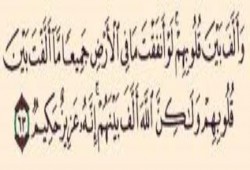 وَأَلَّفَ بَيْنَ قُلُوبِهِمْ ۚ لَوْ أَنفَقْتَ مَا فِى ٱلْأَرْضِ جَمِيعًا مَّآ أَلَّفْتَ بَيْنَ
قُلُوبِهِمْ وَلَـٰكِنَّ ٱللَّهَ أَلَّفَ بَيْنَهُمْ ۚ إِنَّهُۥ عَزِيزٌ حَكِيمٌ ٦٣